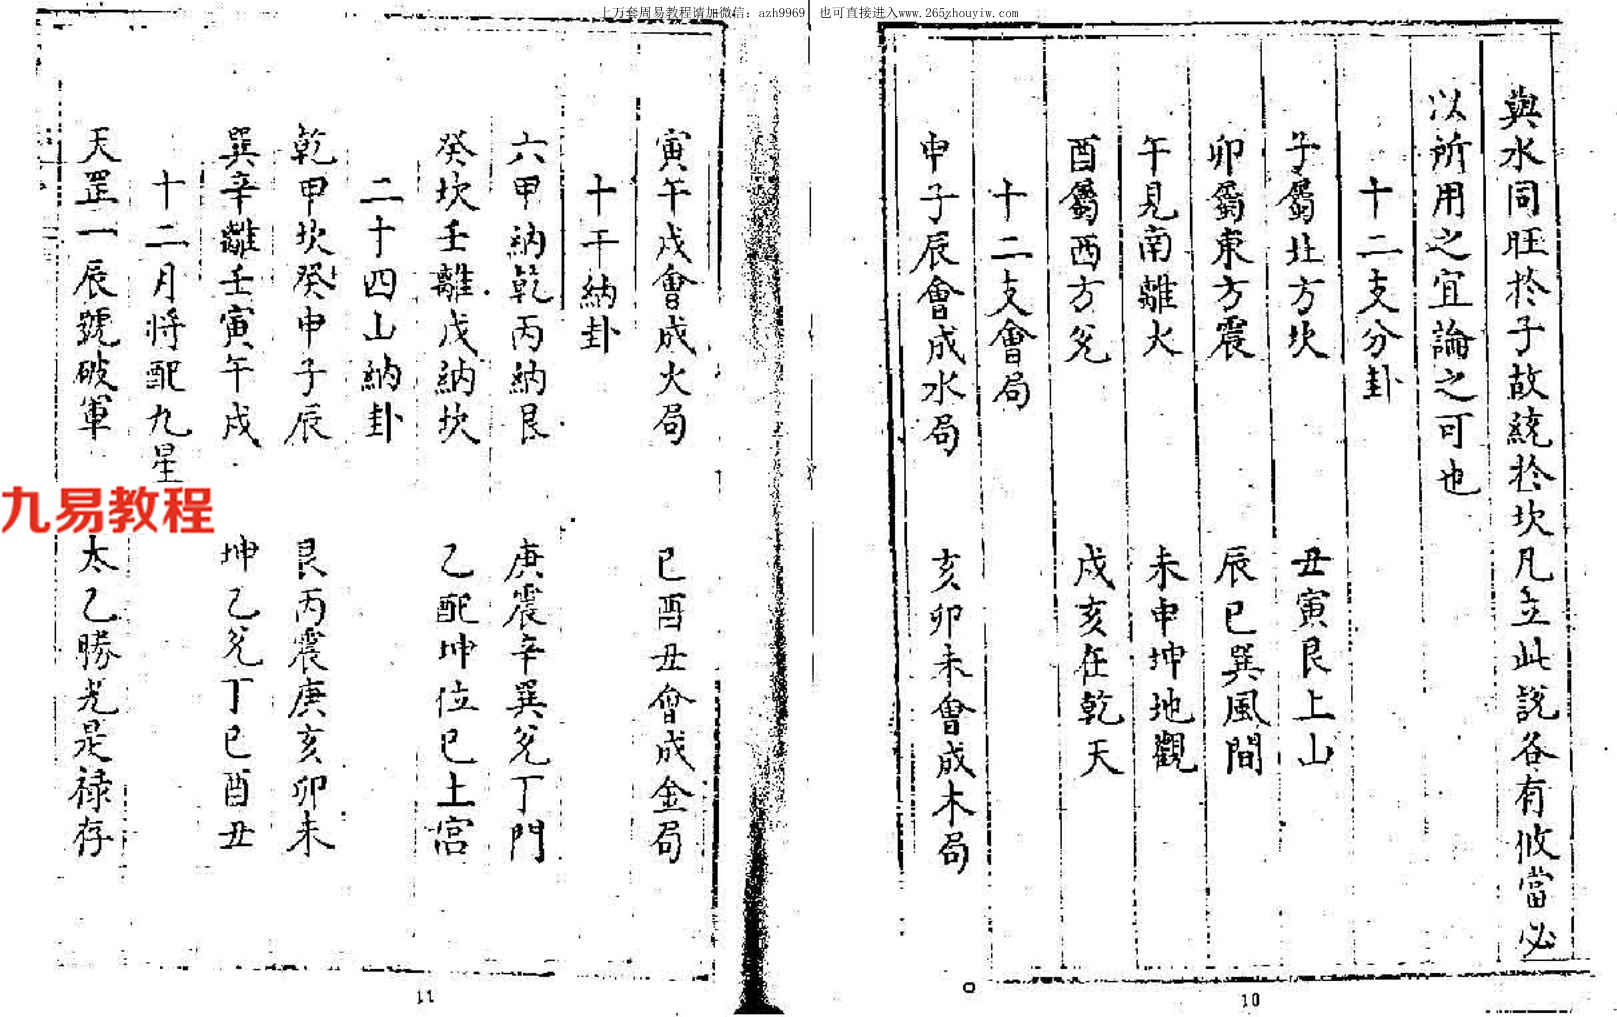 上万套周易教程请加微信：azh9969 也可直接进入www.265zhouyiw.com
與水同旺於子故統於坎凡立此說各有攸當必
以所用之宜論之可也
十二支分卦
子屬北方坎 丑寅艮上山
卯屬東方震 辰巳巽風間
午見南離火 未申坤地觀
酉屬西方兌 戌亥在乾天
十二支會局
申子辰會成水局 亥卯未會成木局
10
寅午戌會成火局 巳酉丑會成金局
十干納卦
六甲納乾丙納艮 庚震辛巽兌丁門
癸坎壬離戊納坎 乙配坤位己土宮
二十四山納卦
乾甲坎癸申子辰 艮丙震庚亥卯未
巽辛離壬寅午戌 坤乙兌丁巳酉丑
十二月將配九星
天罡一辰號破軍 太乙勝光是祿存
11
九易教程